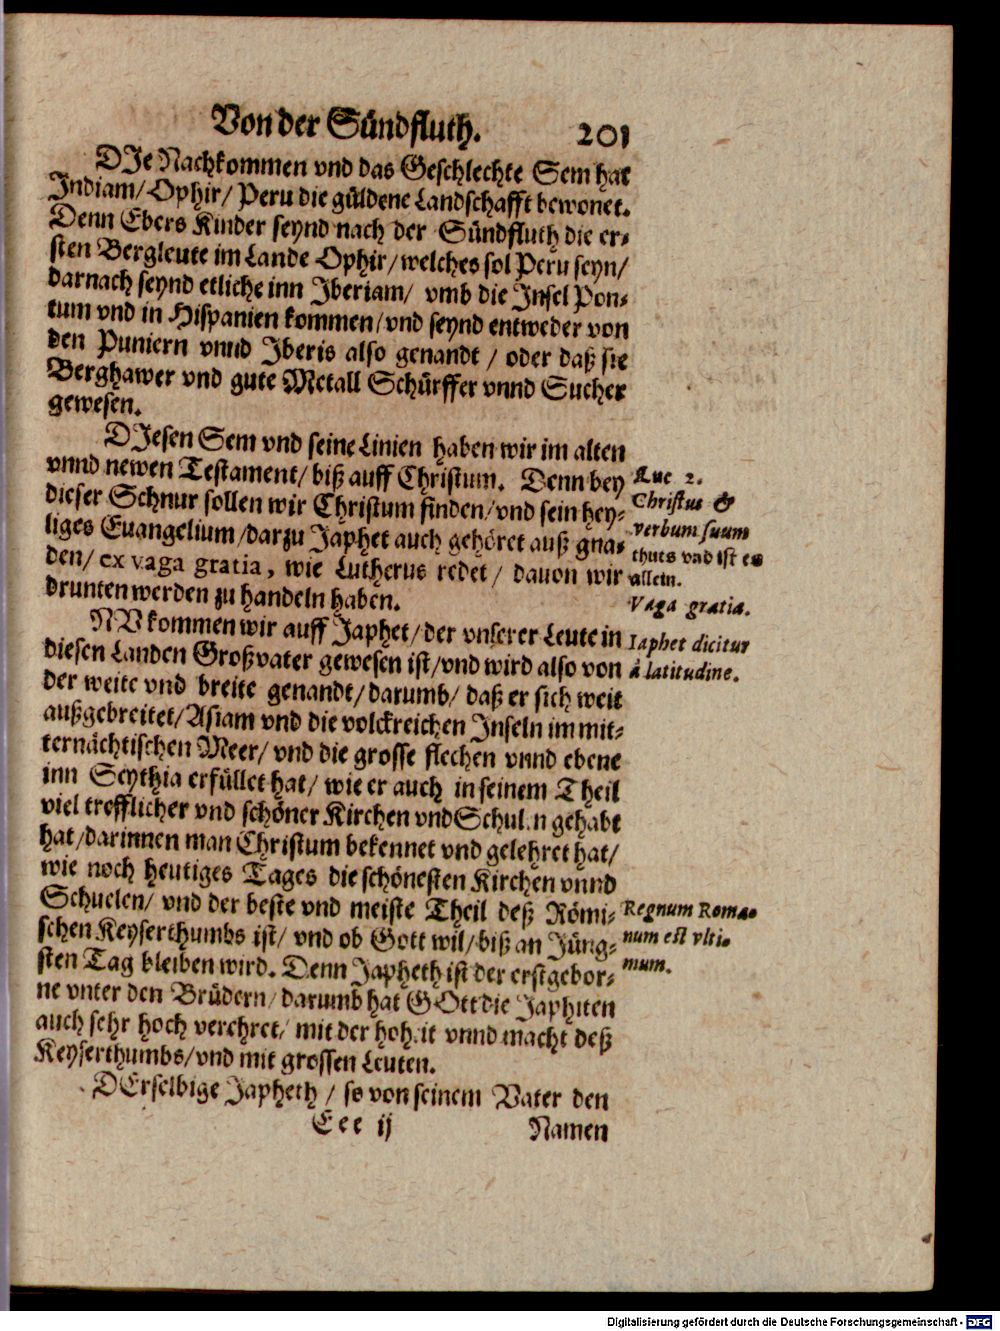 Von der Sündfluth. 201
DIe Nachkommen vnd das Geschlechte Sem hat
Indiam/ Ophir/ Peru die güldene Landschafft bewonet.
Denn Ebers Kinder seynd nach der Sündfluth die er-
sten Bergleute im Lande Ophir/ welches sol Peru seyn/
darnach seynd etliche inn Iberiam/ vmb die Insel Pon-
tum vnd in Hispanien kommen/ vnd seynd entweder von
den Puniern vnnd Iberis also genandt / oder daß sie
Berghawer vnd gute Metall Schürffer vnnd Sucher
gewesen.
DIesen Sem vnd seine Linien haben wir im alten
vnnd newen Testament/ biß auff Christum. Denn bey
dieser Schnur sollen wir Christum finden/ vnd sein hey-
liges Euangelium/ darzu Japhet auch gehöret auß gna-
den/ ex vaga gratia, wie Lutherus redet / dauon wir
drunten werden zu handeln haben.
Luc 2.
Christus &
verbum suum
thuts vnd ist es
allein.
Vaga gratia.
NV kommen wir auff Japhet/ der vnserer Leute in
diesen Landen Großvater gewesen ist/ vnd wird also von
der weite vnd breite genandt/ darumb/ daß er sich weit
außgebreitet/ Asiam vnd die volckreichen Inseln im mit-
ternächtischen Meer/ vnd die grosse flechen vnnd ebene
inn Scythia erfüllet hat/ wie er auch in seinem Theil
viel trefflicher vnd schöner Kirchen vnd Schulen gehabt
hat/ darinnen man Christum bekennet vnd gelehret hat/
wie noch heutiges Tages die schönesten Kirchen vnnd
Schuelen/ vnd der beste vnd meiste Theil deß Römi-
schen Keyserthumbs ist/ vnd ob Gott wil/ biß an Jüng-
sten Tag bleiben wird. Denn Japheth ist der erstgebor-
ne vnter den Brüdern/ darumb hat GOtt die Japhiten
auch sehr hoch verehret/ mit der hoheit vnnd macht deß
Keyserthumbs/ vnd mit grossen Leuten.
Iaphet dicitur
à latitudine.
Regnum Roma-
num est vlti-
mum.
DErselbige Japheth / so von seinem Vater den
Eee ij Namen
Digitalisierung gefördert durch die Deutsche Forschungsgemeinschaft - DFG